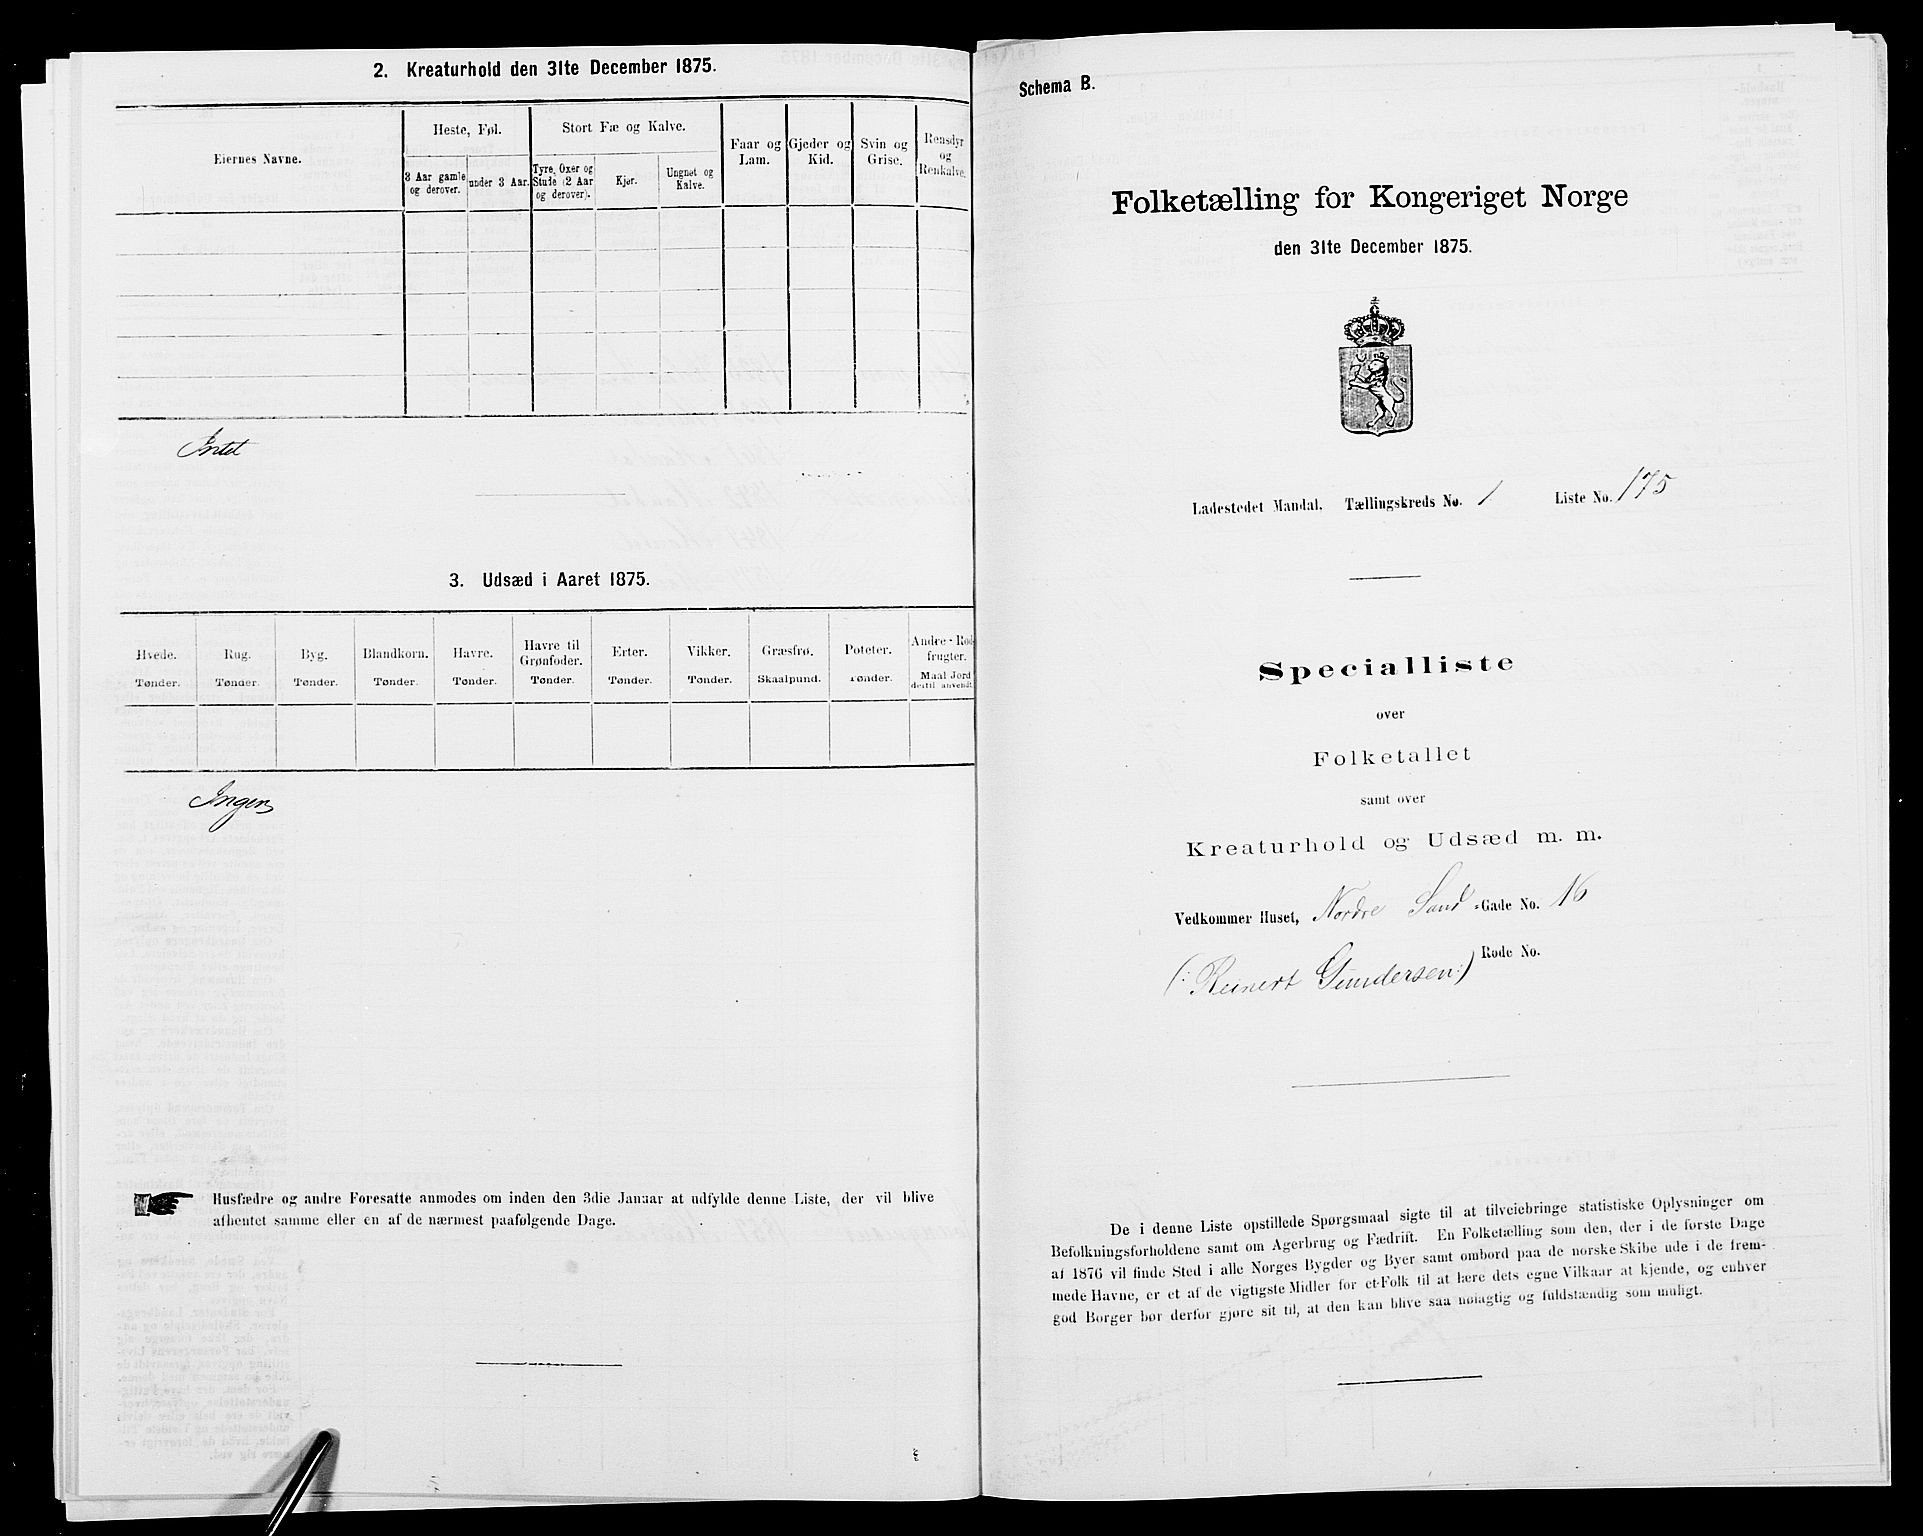 2. Kreaturhold den 31te December 1875.
Eiernes Navne.
Heste, Føl.
3 Aar gamle og derover.
under 3 Aar.
Stort Fæ og Kalve.
Tyre, Oxer og Stude (2 Aar og derover).
Kjør.
Ungnet og Kalve.
Faar og Lam.
Gjeder og Kid.
Svin og Grise.
Rensdyr og Renkalve.
Intet
3. Udsæd i Aaret 1875.
Hvede. Tønder.
Rug. Tønder.
Byg. Tønder.
Blandkorn. Tønder.
Havre. Tønder.
Havre til Grønfoder. Tønder.
Erter. Tønder.
Vikker. Tønder.
Græsfrø. Skaalpund.
Poteter. Tønder.
Andre Rodfrugter. Maal Jord dertil anvendt.
Ingen
Husfædre og andre Foresatte anmodes om inden den 3die Januar at udfylde denne Liste, der vil blive
afhentet samme eller en af de nærmest paafølgende Dage.
Schema B.
Folketælling for Kongeriget Norge
den 31te December 1875.
Ladestedet Mandal. Tællingskreds No. 1 Liste No. 175
Specialliste
over
Folketallet
samt over
Kreaturhold og Udsæd m. m.
Vedkommer Huset, Nordre Sand-Gade No. 16
Rode No.
(: Reinert Gundersen :)
De i denne Liste opstillede Spørgsmaal sigte til at tilveiebringe statistiske Oplysninger om
Befolkningsforholdene samt om Agerbrug og Fædrift. En Folketælling som den, der i de første Dage
af 1876 vil finde Sted i alle Norges Bygder og Byer samt ombord paa de norske Skibe ude i de frem-
mede Havne, er et af de vigtigste Midler for et Folk til at lære dets egne Vilkaar at kjende, og enhver
god Borger bør derfor gjøre sit til, at den kan blive saa nøiagtig og fuldstændig som muligt.